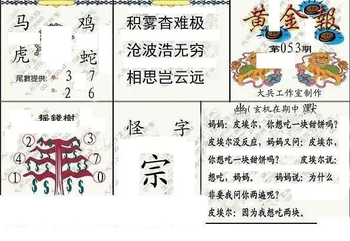 马 鸡
虎 蛇
尾数提供:
3 2
7 6
积雾杳难极
沧波浩无穷
相思岂云远
黄金报
第053期
大兵工作室制作
摇钱树
4 7
2 0
1 3
怪 字
宗
幽(玄机在期中)默
妈妈:皮埃尔,你想吃一块甜饼吗?
皮埃尔没反应,妈妈又问:皮埃尔,
你想吃一块甜饼吗? 皮埃尔说:
想吃,妈妈。 妈妈说:为什么
非要我问你两遍呢?
皮埃尔:因为我想吃两块。